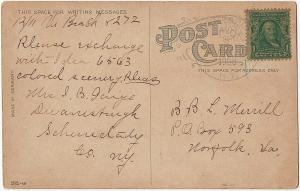 THIS SPACE FOR WRITING MESSAGES
POST CARD
THIS SPACE IS FOR ADDRESS ONLY
12/11 The Beach #272
Please exchange
with 6563
colored scenery, Please
Mrs J. B.
Duanesburgh
Schenectady
Co. NY.
B B L. Merrill
P.O Box 593
Norfolk, Va.